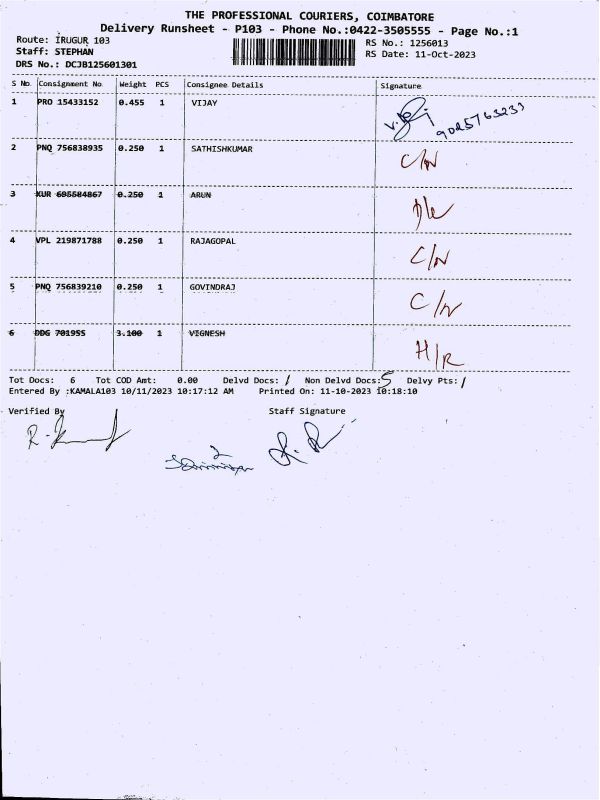 THE PROFESSIONAL COURIERS, COIMBATORE
Delivery Runsheet - P103 - Phone No.:0422-3505555 - Page No.:1
Route: IRUGUR 103
RS No.: 1256013
Staff: STEPHAN
RS Date: 11-Oct-2023
DRS No.: DCJB125601301
S No Consignment No Weight PCS Consignee Details Signature
1 PRO 15433152 0.455 1 VIJAY 9025763233
2 PNQ 756838935 0.250 1 SATHISHKUMAR C/N
3 KUR 695584867 0.250 1 ARUN
4 VPL 219871788 0.250 1 RAJAGOPAL C/N
5 PNQ 756839210 0.250 1 GOVINDRAJ C/N
6 DDG 701955 3.100 1 VIGNESH H/R
Tot Docs: 6 Tot COD Amt: 0.00 Delvd Docs: / Non Delvd Docs:5 Delvy Pts: /
Entered By :KAMALA103 10/11/2023 10:17:12 AM Printed On: 11-10-2023 10:18:10
Verified By Staff Signature